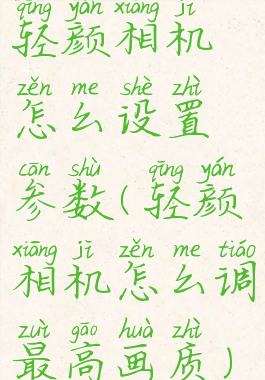 qīng yán xiàng jī
轻颜相机
zěn me shè zhì
怎么设置
cān shù qīng yán
参数(轻颜
xiāng jī zěn me tiáo
相机怎么调
zuì gāo huà zhì
最高画质)